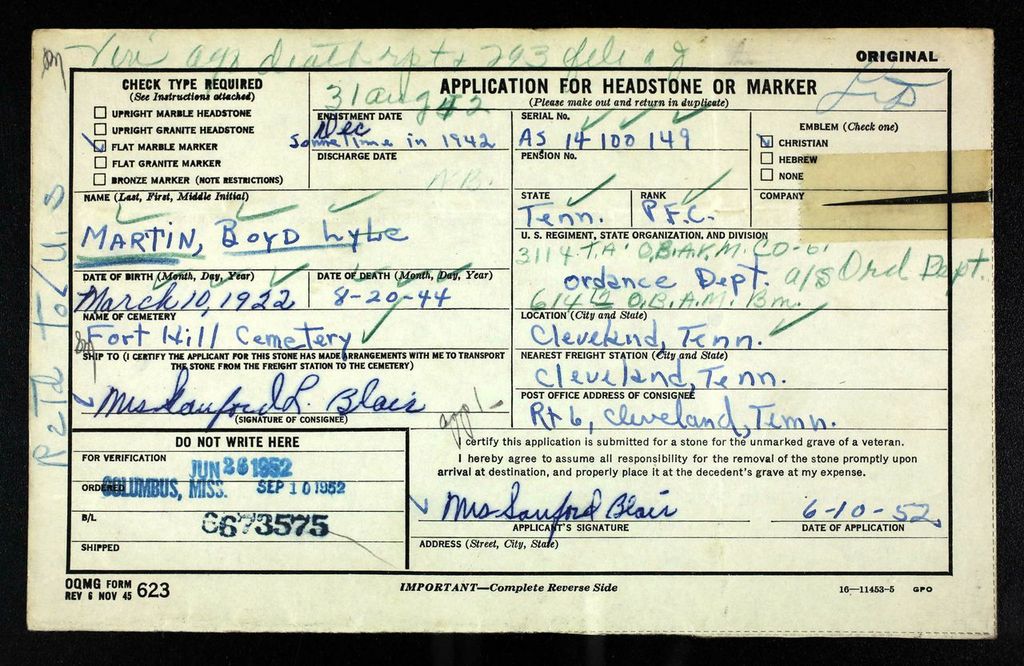 ORIGINAL
CHECK TYPE REQUIRED
(See Instructions attached)
UPRIGHT MARBLE HEADSTONE
UPRIGHT GRANITE HEADSTONE
FLAT MARBLE MARKER
FLAT GRANITE MARKER
BRONZE MARKER (NOTE RESTRICTIONS)
APPLICATION FOR HEADSTONE OR MARKER
(Please make out and return in duplicate)
31 Aug 42
ENLISTMENT DATE
Dec
Sometime in 1942
DISCHARGE DATE
SERIAL No.
AS 14 100 149
PENSION No.
EMBLEM (Check one)
CHRISTIAN
HEBREW
NONE
STATE
Tenn.
RANK
P.F.C.
COMPANY
NAME (Last, First, Middle Initial)
MARTIN, BOYD Lyle
U. S. REGIMENT, STATE ORGANIZATION, AND DIVISION
ordance Dept. a/s Ord Dept.
DATE OF BIRTH (Month, Day, Year)
March 10, 1922
DATE OF DEATH (Month, Day, Year)
8-20-44
NAME OF CEMETERY
Fort Hill Cemetery
LOCATION (City and State)
Cleveland, Tenn.
SHIP TO (I CERTIFY THE APPLICANT FOR THIS STONE HAS MADE ARRANGEMENTS WITH ME TO TRANSPORT
THE STONE FROM THE FREIGHT STATION TO THE CEMETERY)
Mrs Sanford L. Blair
(SIGNATURE OF CONSIGNEE)
NEAREST FREIGHT STATION (City and State)
Cleveland, Tenn.
POST OFFICE ADDRESS OF CONSIGNEE
Rt 6, Cleveland, Tenn.
DO NOT WRITE HERE
FOR VERIFICATION
JUN 26 1952
ORDERED
COLUMBUS, MISS. SEP 10 1952
B/L
6673575
SHIPPED
I certify this application is submitted for a stone for the unmarked grave of a veteran.
I hereby agree to assume all responsibility for the removal of the stone promptly upon
arrival at destination, and properly place it at the decedent's grave at my expense.
Mrs Sanford Blair
APPLICANT'S SIGNATURE
6-10-52
DATE OF APPLICATION
ADDRESS (Street, City, State)
OQMG FORM 623
REV 6 NOV 45
IMPORTANT—Complete Reverse Side
16—11453-5 GPO